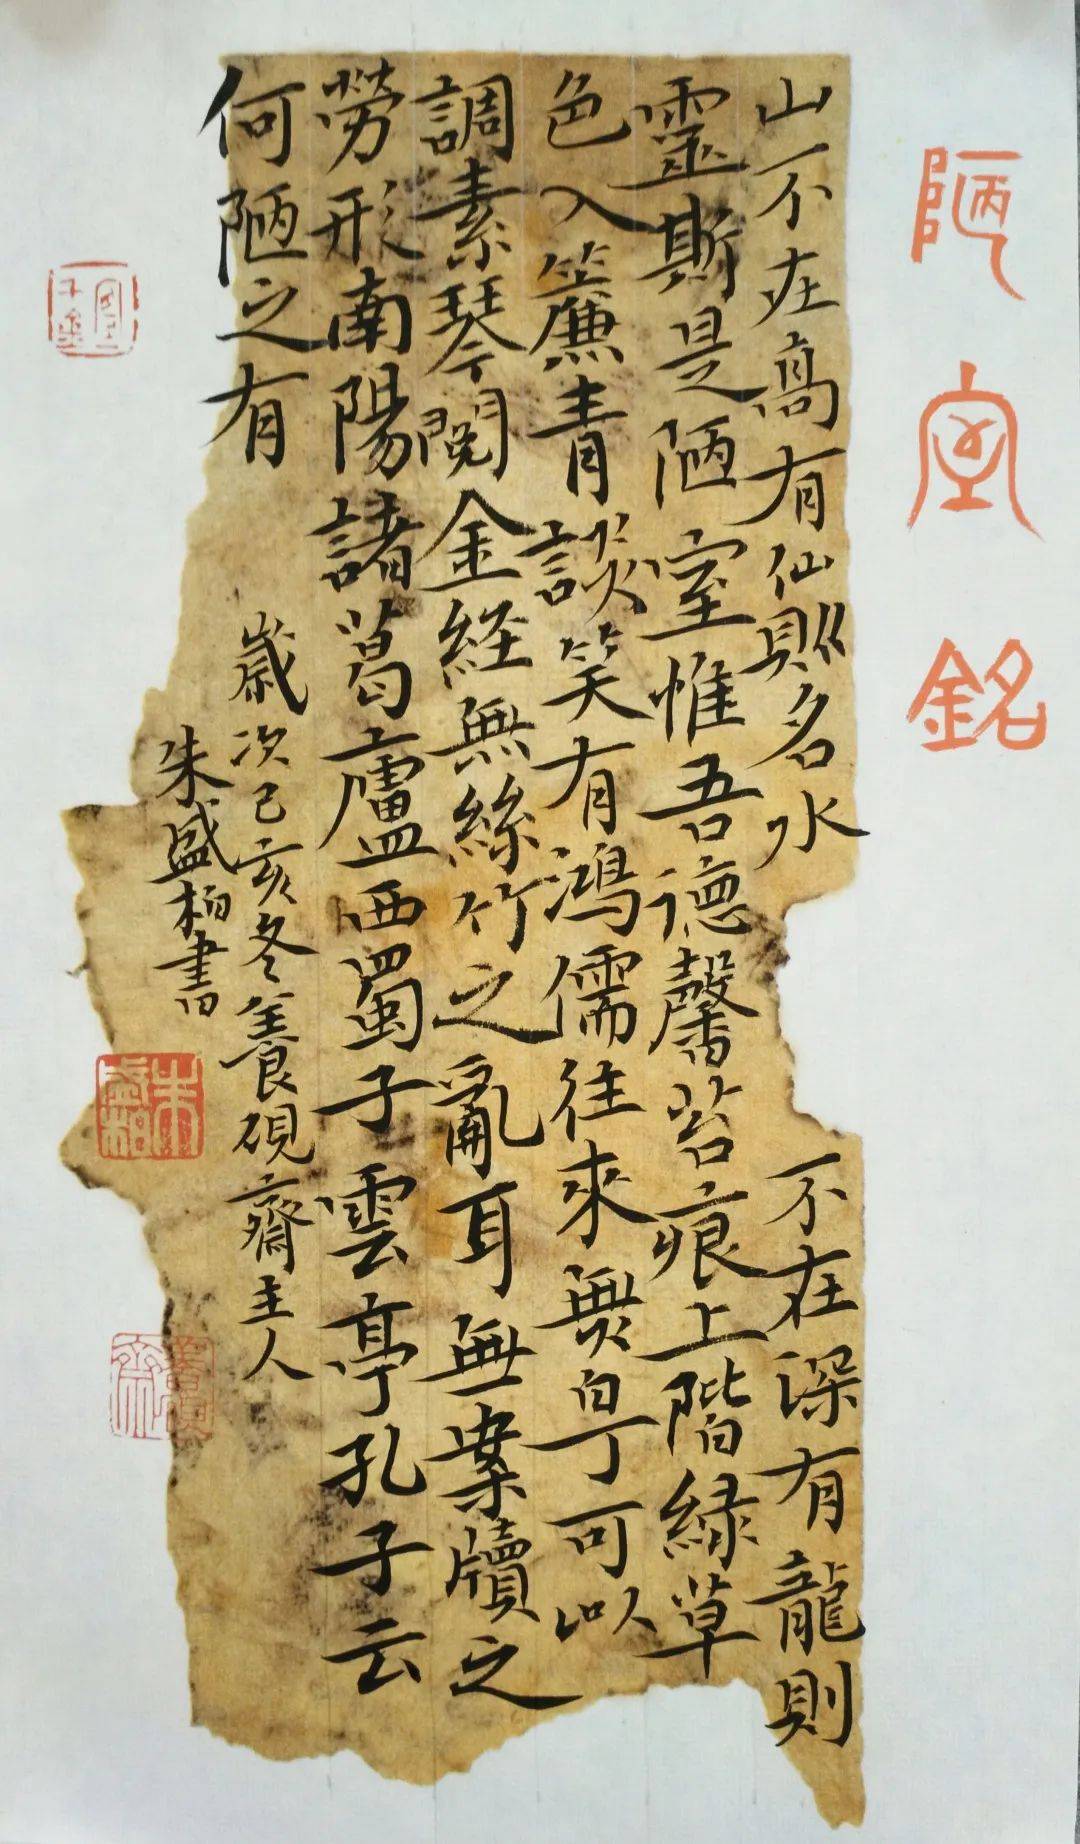 陋室銘
山不在高有仙則名水不在深有龍則
靈斯是陋室惟吾德馨苔痕上階緑草
色入簾青談笑有鴻儒往來無白丁可以
調素琴閱金経無絲竹之亂耳無案牘之
勞形南陽諸葛廬西蜀子雲亭孔子云
何陋之有
歲次己亥冬養硯齋主人
朱盛柏書
朱盛柏
養硯齋